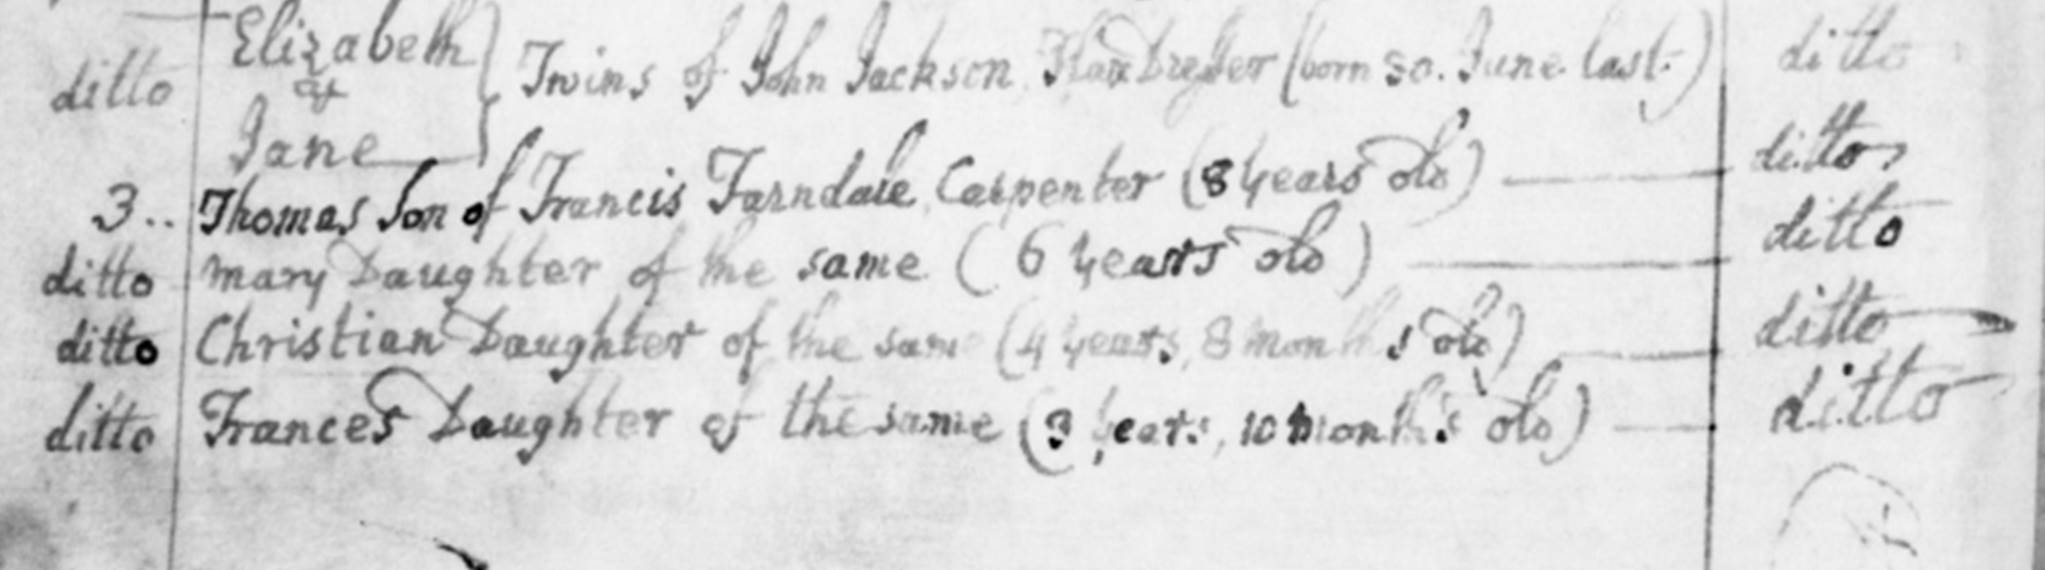 Elizabeth
ditto & Twins of John Jackson Flax Dresser (born 30. June last.) ditto
Jane
3.. Thomas Son of Francis Farndale Carpenter (8 Years old) ditto
ditto Mary Daughter of the same (6 Years old) ditto
ditto Christian Daughter of the same (4 Years, 8 Months old) ditto
ditto Frances Daughter of the same (3 Years, 10 Months old) ditto